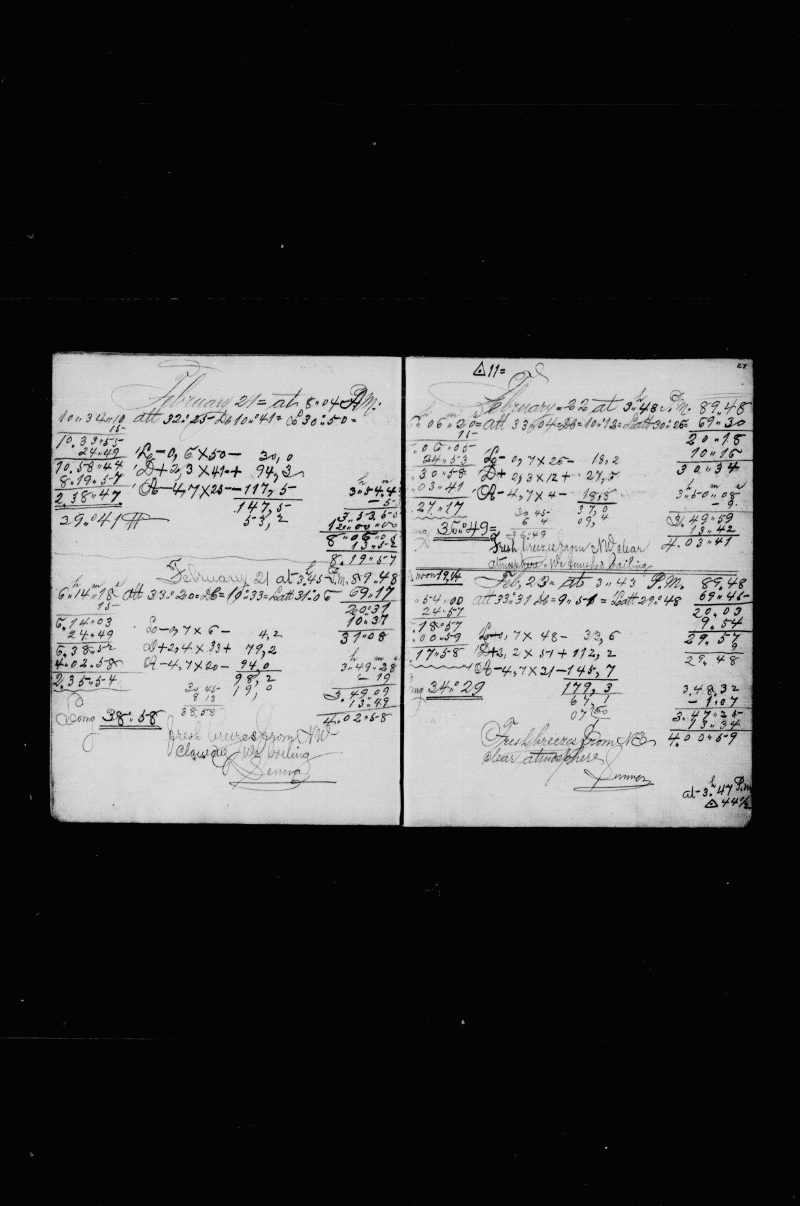 February 21= at 8"04 P.M.
10"34"10 att 32°25 D610"41= L30°50=
15
10.33"55
24"49 Lo-0,6X50- 30,0
10.58"44 D+2,3X41+ 94,3
8.19"57 A-4,7X25-117,5
2.38"47 147,5
39°041 53,2
3"54"4
-5
3.53.55
12=00"00
8"06"05
13"52
8.19"57
February 21 at 3"45 P.M. 89"48
6"14"18 att 33°20=D6=10"33=Latt 31°06 69"17
15 20"31
6.14"03 10"37
24"49 Lo-0,7X6- 4,2 31"08
6.38"52 D+2,4X33+ 79,2
4.02.58 A-4,7X20- 94,0 3"49"28
2.35"54 98,2 -19
30 45 19,0 3.49"09
8 13 13"49
Long 38°58 38,58 4.02"58
fresh breezes from NW
Cloudy We boiling
Senna
△11= 27
February=22 at 3"48 P.M. 89"48
06"20= att 33°04=D6=10"12=Latt=30°26= 69"30
15 20"18
.06"05 10"16
24"53 Lo-0,7X26- 18,2 30"34
30"58 D+2,3X12+ 27,5
03"41 A-4,7X4- 18,8 3"50"08
27"17 37,0 -9
30 45 09,4 3.49"59
6 4 13"42
36°49= 36"49 4.03"41
Fresh breezes from NW clear
atmosphere We finished Boiling
noon 19,14 Feb, 23= at 3"43 P.M. 89,48
54"00 att 33°31 D6=9"51=Latt 29°48 69"45
24"57 20"03
18"57 9"54
.00"59 Lo-0,7X48- 33,6 29"57
17"58 D+2,2X51+112,2 9
A-4,7X21-145,7 29"48
34°29 179,3
67,1 3.48,32
07 60 -1"07
3.47"25
13"34
Fresh breeze from NE 4.00"59
clear atmosphere
Senna
at 3"47 P.m
△44½